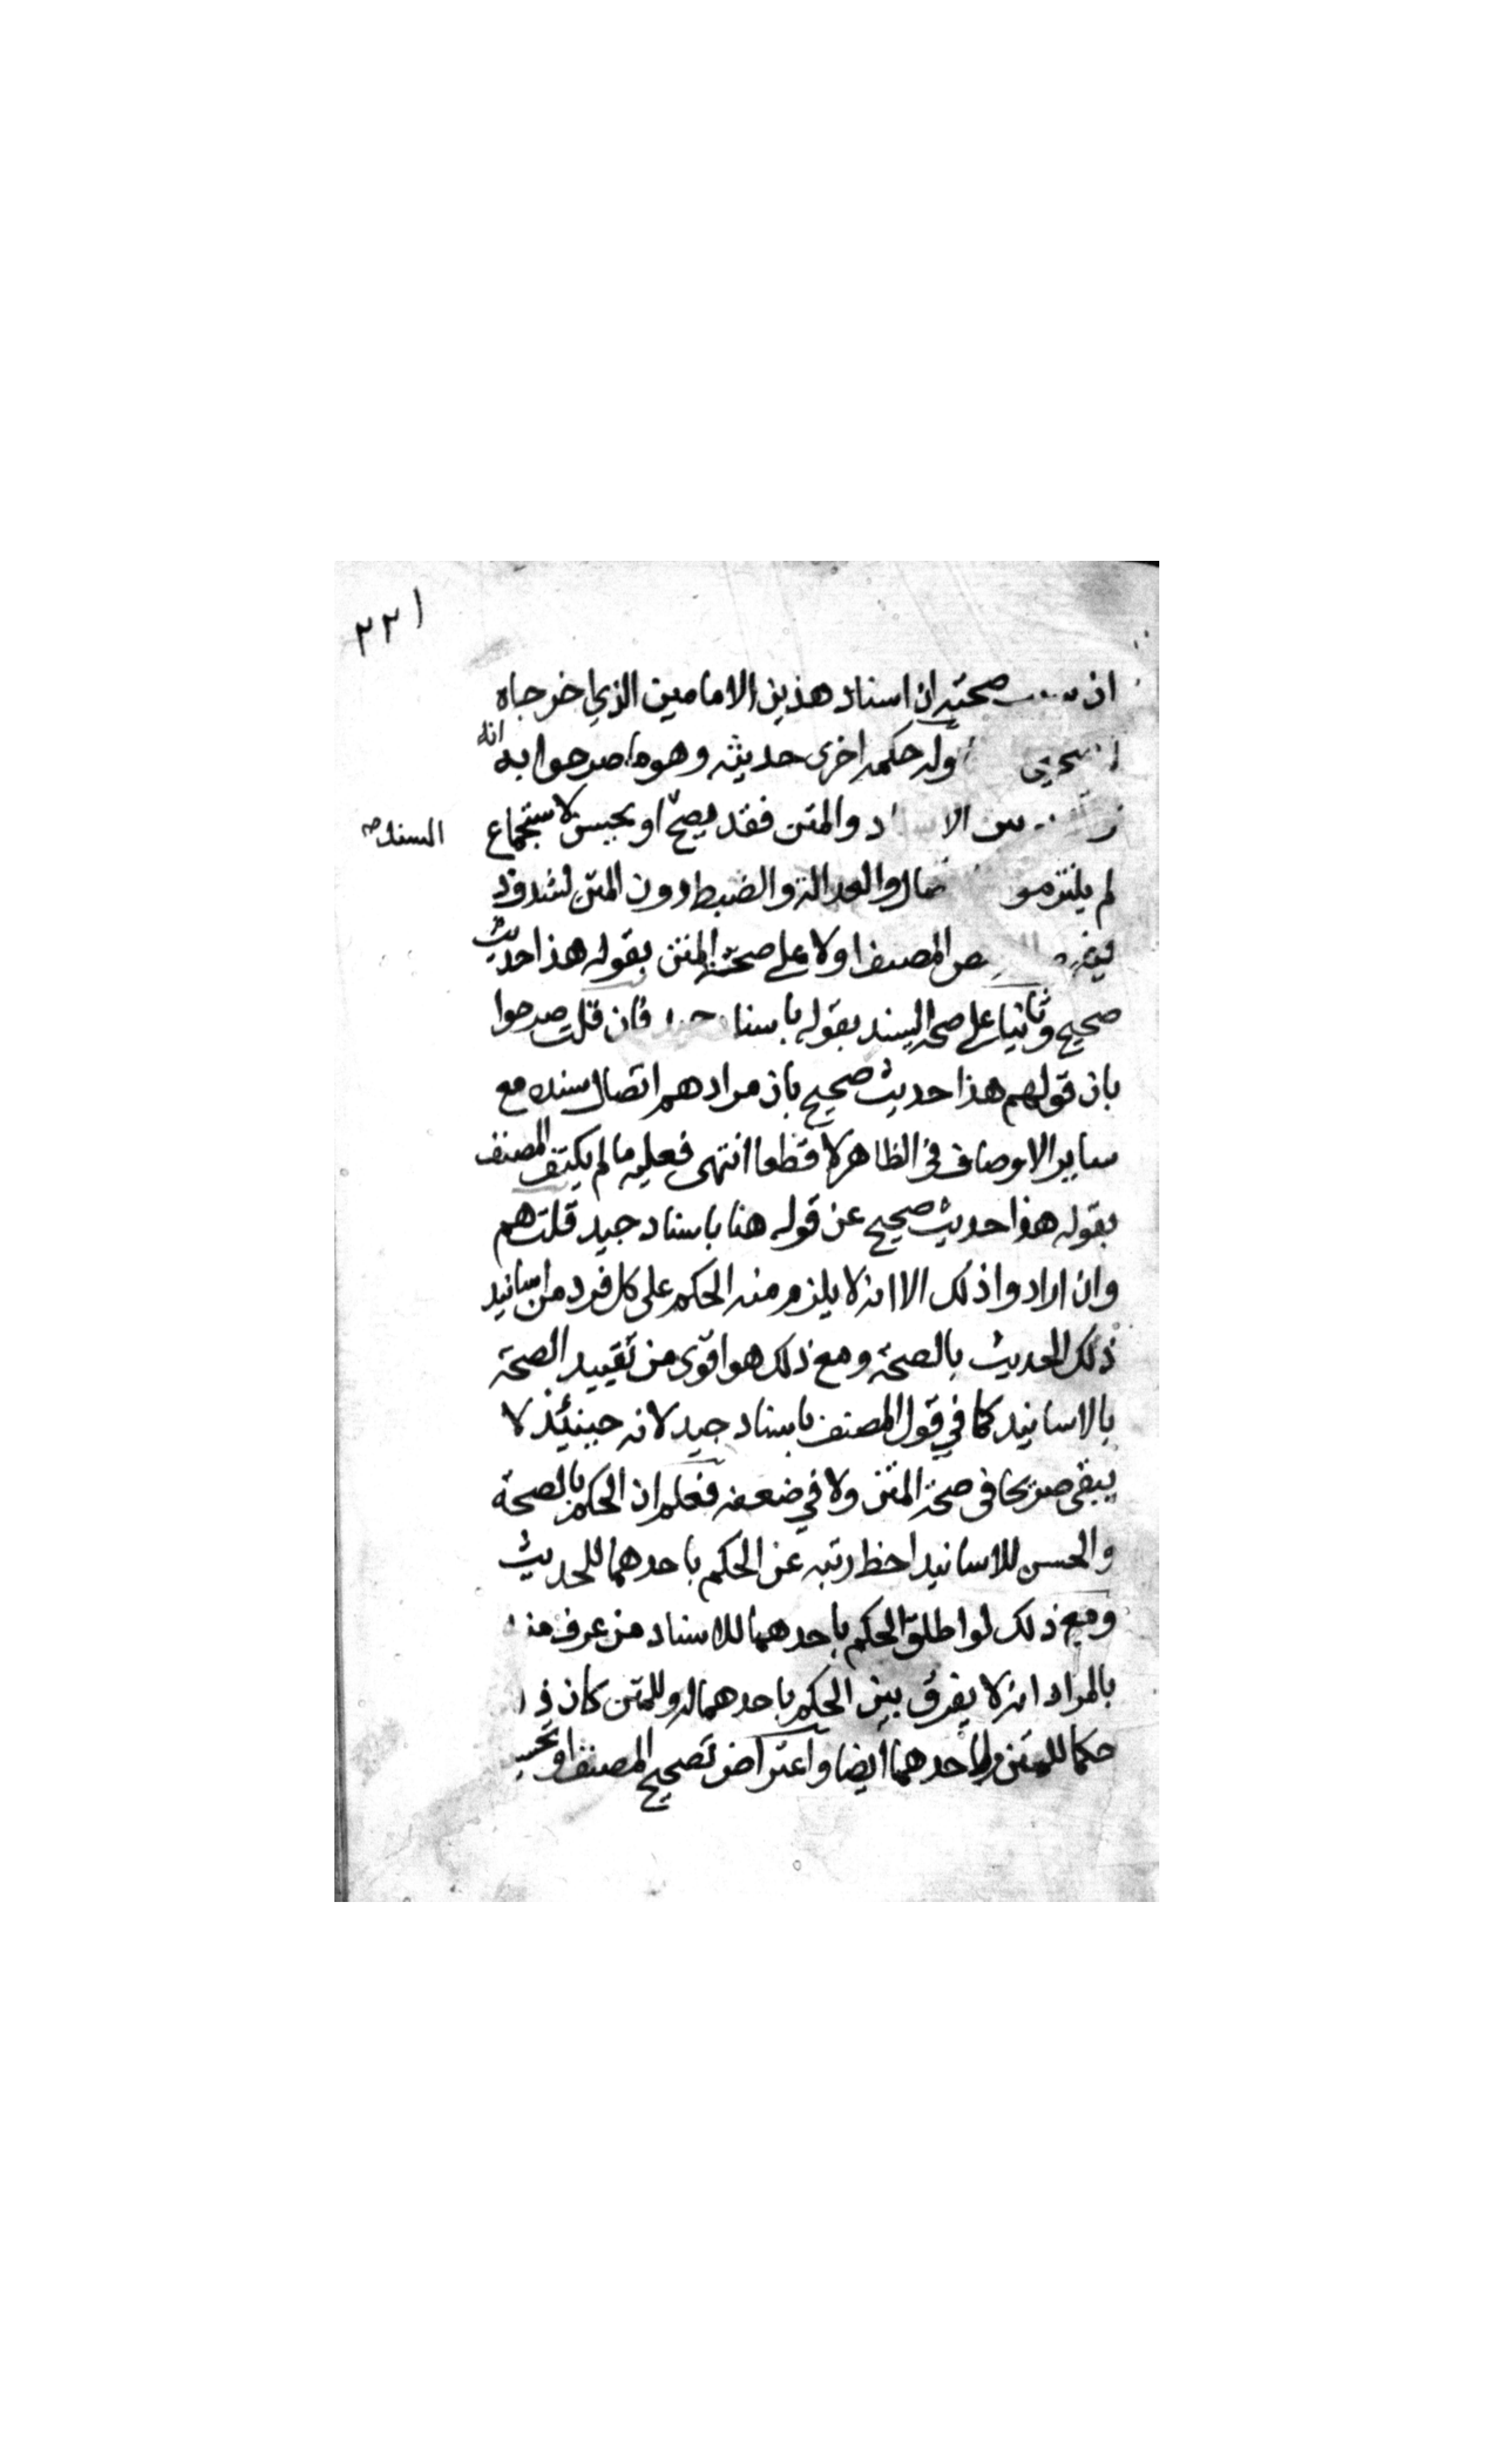 ٢٢١
ان صحته ان اسناد هذين الامامين الذي اخرجاه
وله حكمه اخرى حديثه وهو ما صرحوا به انه
الا د والمتن فقد يصح او يحسن لاستجماع
السند صح
لم يلتزمو والعدالة والضبط دون المتن لشذوذ
المصنف اولا على صحة المتن بقوله هذا حديث
صحيح وثانيا على صحة السند بقوله باسناد جيد فان قلت صرحوا
بان قولهم هذا حديث صحيح بان مرادهم اتصال سنده مع
ساير الاوصاف في الظاهر لا قطعا انتهى فعليه ما لم يكتف المصنف
بقوله هذا حديث صحيح عن قوله هنا باسناد جيد قلت هم
وان ارادوا ذلك الا انه لا يلزم منه الحكم على كل فرد من اسانيد
ذلك الحديث بالصحة ومع ذلك هو اقوى من تقييد الصحة
بالاسانيد كما في قول المصنف باسناد جيد لانه حينئذ لا
يبقى صريحا في صحة المتن ولا في ضعفه فعلم ان الحكم بالصحة
والحسن للاسانيد احط رتبه عن الحكم باحدهما للحديث
ومع ذلك لو اطلق الحكم باحدهما للاسناد من عرف منه
بالمراد انه لا يفرق بين الحكم باحدهما له وللمتن كان
حكما للمتن باحدهما ايضا واعتراض تصحيح المصنف او